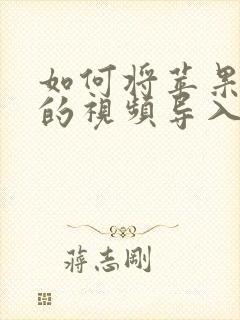 如何将苹果
的視頻导入
蒋志剛